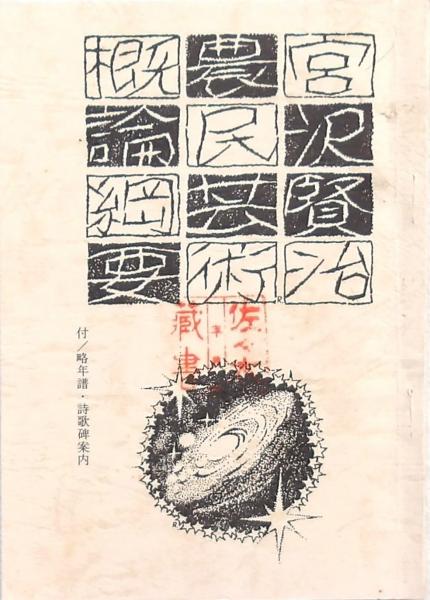 宮沢賢治
農民芸術
概論綱要
付/略年譜・詩歌碑案内
藏書